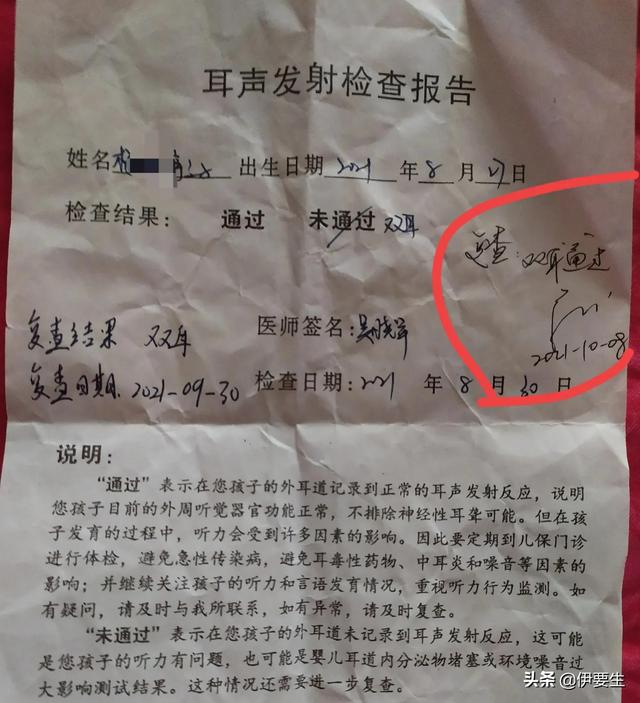 耳声发射检查报告
姓名 出生日期 2021 年 8 月 27 日
检查结果： 通过 未通过 双耳
复查：双耳通过
2021-10-08
复查结果 双耳 医师签名：
复查日期 2021-09-30 检查日期：2021 年 8 月 30 日
说明：
“通过”表示在您孩子的外耳道记录到正常的耳声发射反应，说明
您孩子目前的外周听觉器官功能正常，不排除神经性耳聋可能。但在孩
子发育的过程中，听力会受到许多因素的影响。因此要定期到儿保门诊
进行体检，避免急性传染病，避免耳毒性药物、中耳炎和噪音等因素的
影响；并继续关注孩子的听力和言语发育情况，重视听力行为监测。如
有疑问，请及时与我所联系，如有异常，请及时复查。
“未通过”表示在您孩子的外耳道未记录到耳声发射反应，这可能
是您孩子的听力有问题，也可能是婴儿耳道内分泌物堵塞或环境噪音过
大影响测试结果。这种情况还需要进一步复查。
头条 @伊要生